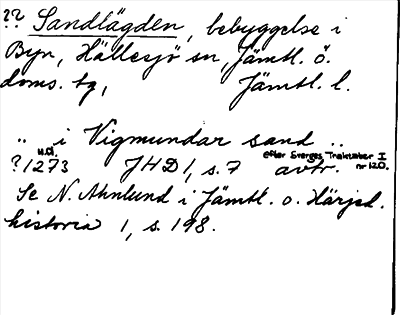 ?? Sandlägden, bebyggelse i
Byn, Hällesjö sn, Jämtl. ö.
doms. tg, Jämtl. l.
.. i Vigmundar sand ..
?1273 JHD 1, s. 7 avtr. efter Sverges Traktater I nr 120.
Se N. Ahnlund i Jämtl. o. Härjed.
historia 1, s. 198.